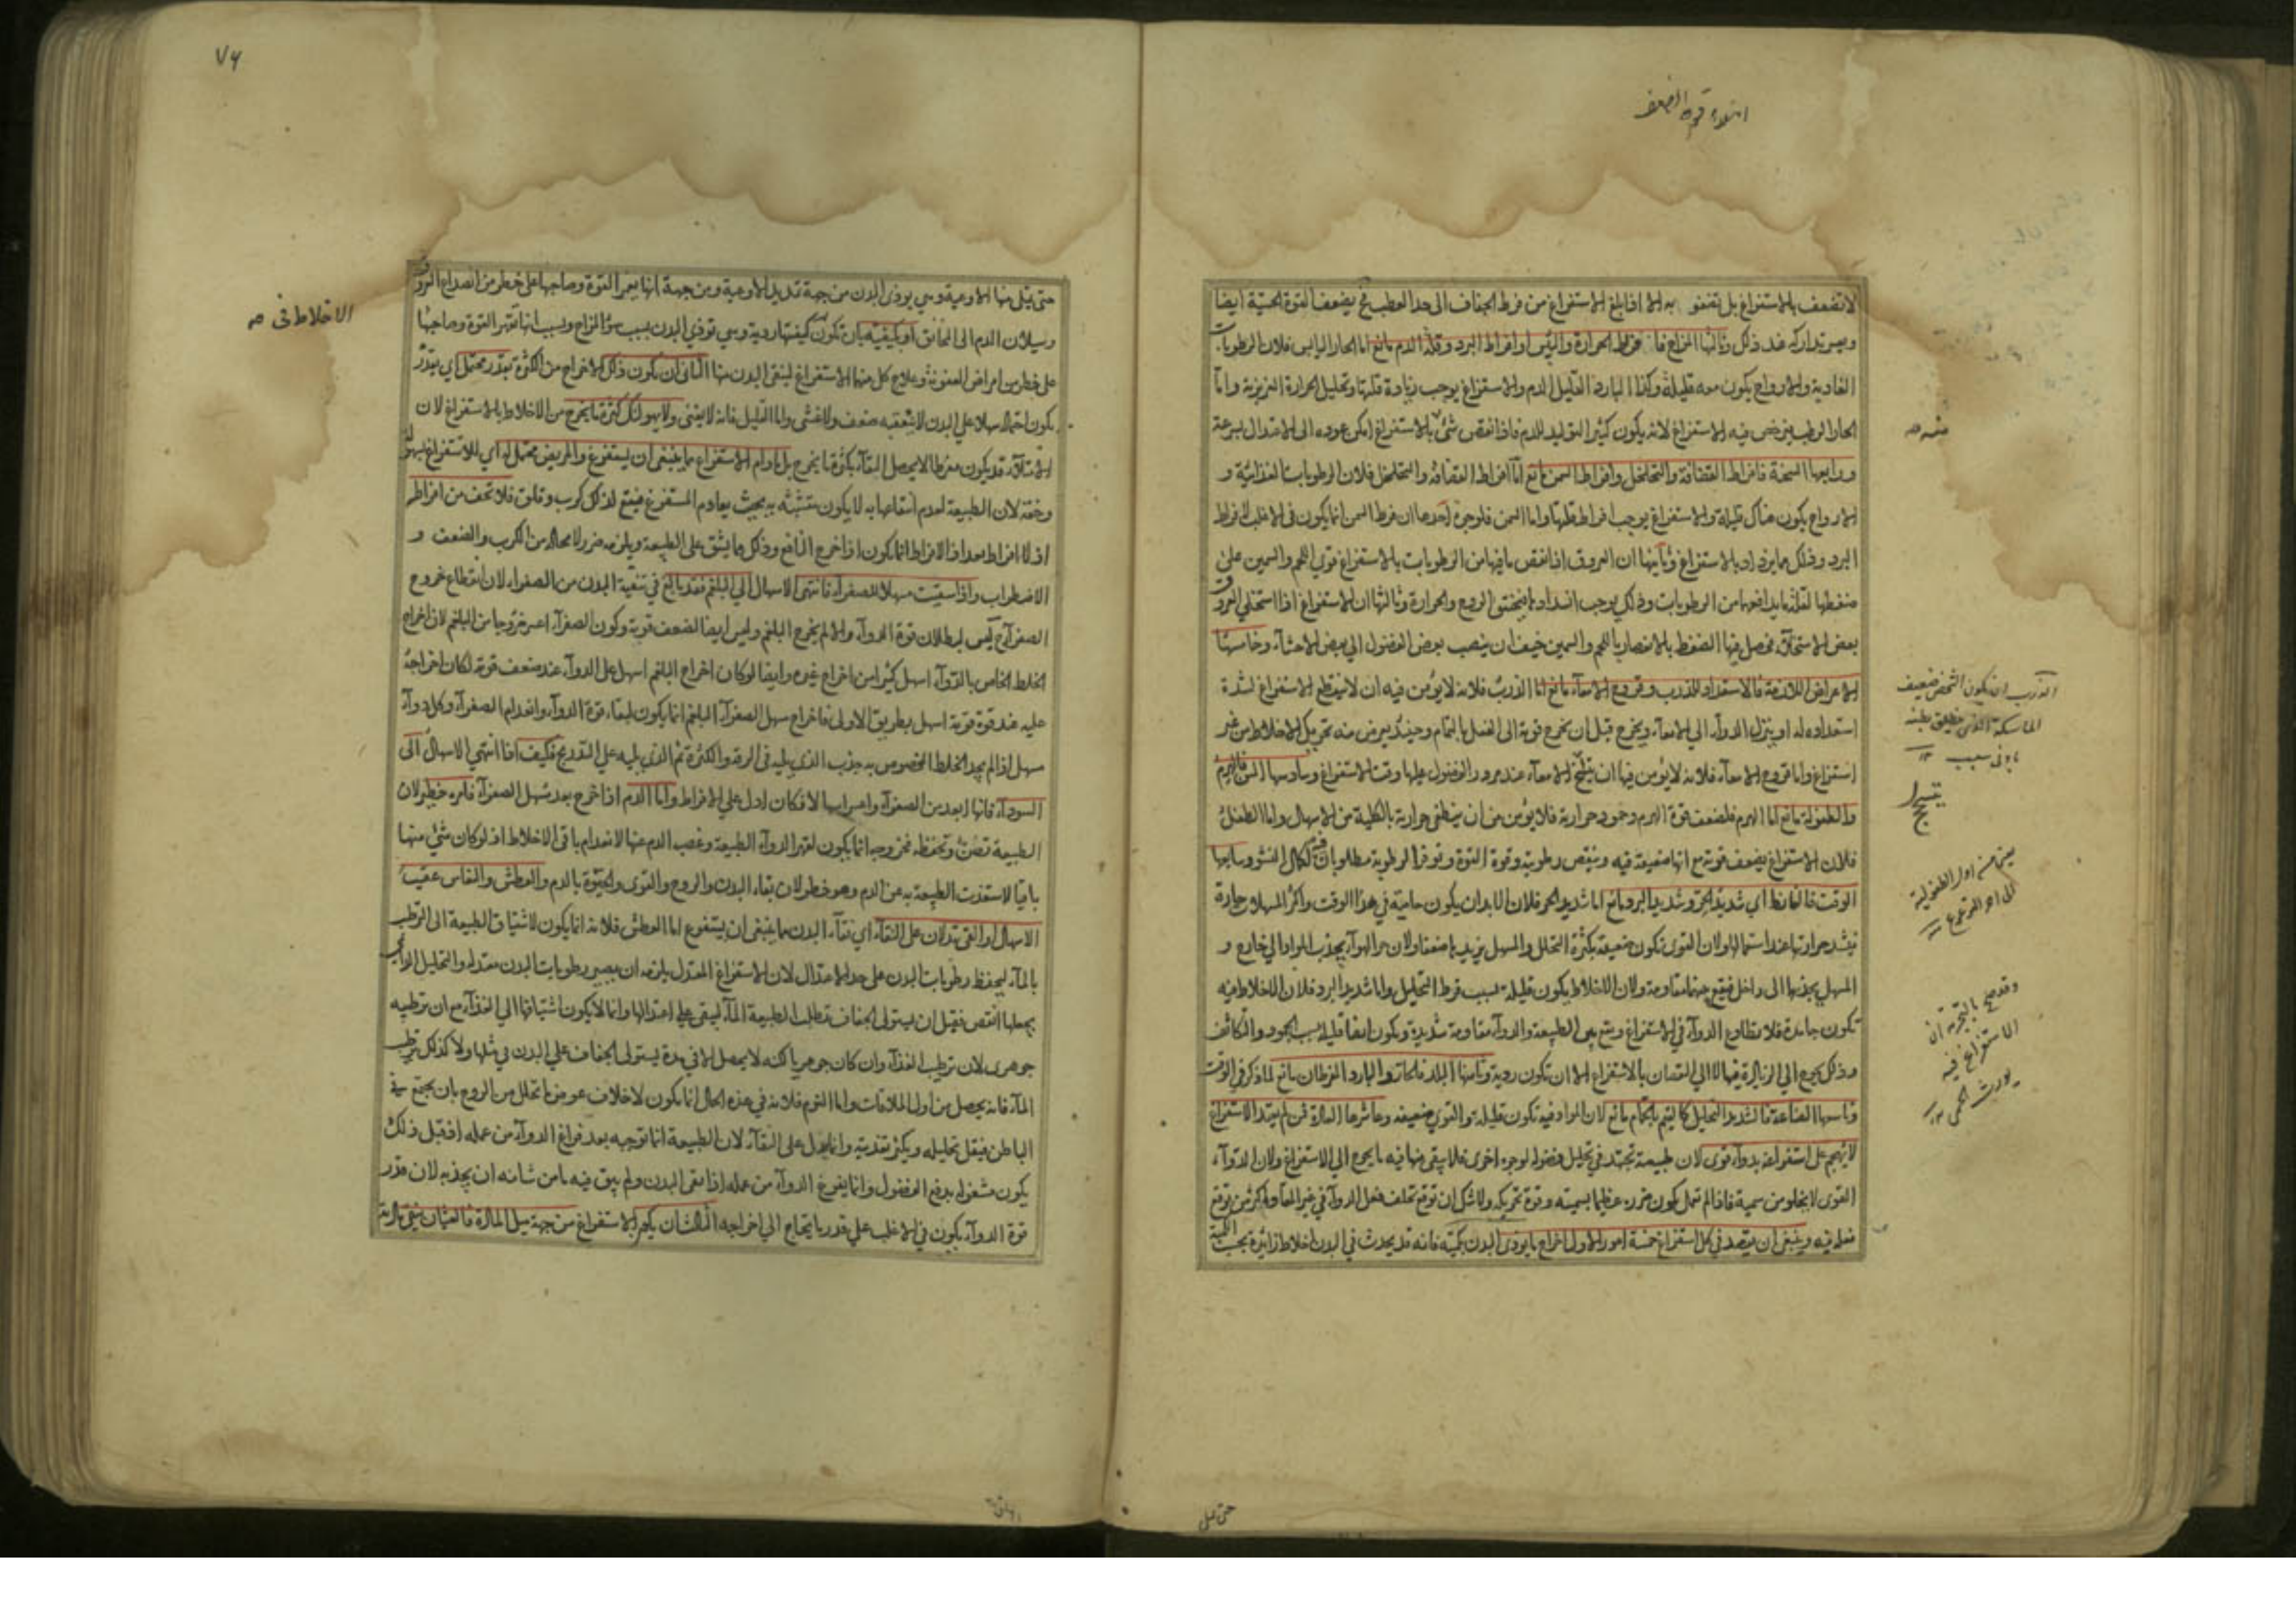 امتلاء قوة الضعف
لا تضعف بالاستفراغ بل تقوى به الا اذا بلغ الاستفراغ من فرط الجفاف الى حد العطب فح يضعف القوة الحسية ايضا
ويعسر تداركه عند ذلك وثالثها المزاج فان فرط الحرارة واليبس او افراط البرد وقلة الدم مانع اما الحار اليابس فلان الرطوبات
الغاذية والارواح يكون معه قليلة وكذا البارد القليل الدم والاستفراغ يوجب زيادة قلتها وتحليل الحرارة الغريزية واما
الحار الرطب فيرخص فيه الاستفراغ لانه يكون كثير التوليد للدم فاذا نقص شئ بالاستفراغ امكن عوده الى الاعتدال بسرعة
ورابعها السحنة فافراط القضافة والتخلخل وافراط السمن مانع اما افراط القضافة والتخلخل فلان الرطوبات الغذائية و
الارواح يكون هناك قليلة والاستفراغ يوجب افراط قلتها واما السمن فلوجوه احدها ان فرط السمن انما يكون في الاغلب لافراط
البرد وذلك مما يزداد بالاستفراغ وثانيها ان العروق اذا نقص ما فيها من الرطوبات بالاستفراغ قوي اللحم والسمين على
ضغطها لقلة ما يدافعها من الرطوبات وذلك يوجب انسدادها فيختنق الروح والحرارة وثالثها ان الاستفراغ اذا استخلى العروق
بعض الاستخلاء فحصل فيها الضغط بالانعصار باللحم والسمين خيف ان ينصب بعض الفضول الى بعض الاحشاء وخامسها
الاعراض اللازمة فالاستعداد للذرب وقروح الامعاء مانع اما الذرب فلانه لا يؤمن فيه ان لا ينقطع الاستفراغ لشدة
استعداده له او ينزل الدواء الى الامعاء ويخرج قبل ان يخرج قوته الى الفعل بالتمام وحينئذ يعرض منه تحريك الاخلاط من غير
استفراغ واما قروح الامعاء فلانه لا يؤمن فيها ان ينسحج الامعاء عند مرور الفضول عليها وقت الاستفراغ وسادسها السن فالهرم
والطفولة مانع اما الهرم فلضعف قوة الهرم وخمود حرارته فلا يؤمن من ان ينطفى حرارته بالكلية من الاسهال واما الطفل
فلان الاستفراغ يضعف قوته مع انها ضعيفة فيه وينقص رطوبته وقوة القوة وتوفر الرطوبة مطلوبان فيه لكمال النشو وسابعها
الوقت فالقايظ اي شديد الحر وشديد البرد مانع اما شديد الحر فلان الابدان يكون حامية في هذا الوقت واكثر المسهلات حارة
فيشتد حرارتها عند استعمالها ولان القوى تكون ضعيفة بكثرة التحلل والمسهل يزيدها ضعفا ولان حر الهواء يجذب المواد الى خارج و
المسهل يجذبها الى داخل فيقع بينهما مقاومة ولان الاخلاط يكون قليلة بسبب فرط التحليل واما شديد البرد فلان الاخلاط فيه
تكون جامدة فلا تطاوع الدواء في الاستفراغ ويقع بين الطبيعة والدواء مقاومة شديدة وتكون ايضا قليلة بسبب الجمود والتكاثف
وتاسعها الصناعة فالشديد التحليل كالقيم بالحمام مانع لان المواد فيه تكون قليلة والقوى ضعيفة وعاشرها العادة فمن لم يعتد الاستفراغ
لا يهجم على استفراغه بدواء قوى لان طبيعته تجتهد في تحليل فضوله لوجوه اخرى فلا يبقى منها فيه ما يحوج الى الاستفراغ ولان الدواء
القوى لا يخلو من سمية فاذا لم تعمل يكون ضرره عظيما بسميته وقوة تحريكه ولا شك ان توقع تخلف فعل الدواء في غير المعتاد اكثر من توقع
فعله فيه وينبغي ان يقصد في كل استفراغ خمسة امور الاول اخراج ما يوذى البدن بكميته فانه قد يحدث في البدن اخلاط زائدة بحسب الكمية
الذرب ان يكون الشخص ضعيف
الماسكة
بادنى سبب ١٢
ينسحج
من اول الطفولية
الى
وقد صح بالتجربة ان
الاستفراغ فيه
يورث الحمى ١٢
٧٦
الاخلاط في صه
وسيلان الدم الى المخانق او بكيفيته بان تكون كيفيتها ردية وهي توذي البدن بسبب سؤ المزاج وبسبب انها تقهر القوة وصاحبها
على خطر من امراض العفونة وعلاج كل منهما الاستفراغ لينقى البدن منها الثاني ان يكون ذلك الاخراج من الكثرة بقدر محتمل اي بقدر
يكون احتماله سهلا على البدن لا يتعقبه ضعف ولا غشى واما القليل فانه لا يغنى ولا يهولنك كثرة ما يخرج من الاخلاط بالاستفراغ لان
الامتلاء قد يكون مفرطا لا يحصل النقاء بكثرة ما يخرج بل ما دام الاستفراغ مما ينبغي ان يستفرغ والمريض محتمل له اي للاستفراغ بسهولة
وخفة لان الطبيعة لعدم انتفاعها به لا يكون متشبثة به بحيث يعاوم المستفرغ فيقع لذلك كرب وقلق فلا تخف من افراط
اذ لا افراط بعد اذ الافراط انما يكون اذا خرج النافع وذلك مما يشق على الطبيعة ويلزمه ضرر لا محالة من الكرب والضعف و
الاضطراب واذا سقيت مسهلا للصفراء فانتهى الاسهال الى البلغم فقد بالغ في تنقية البدن من الصفراء لان انقطاع خروج
الصفراء ح ليس لبطلان قوة الدواء والا لم يخرج البلغم وليس ايضا لضعف قوته وكون الصفراء اعسر خروجا من البلغم لان اخراج
الخلط الخاص بالدواء اسهل كثيرا من اخراج غيره وايضا لو كان اخراج البلغم اسهل على الدواء عند ضعف قوته لكان اخراجه
عليه عند قوة قوته اسهل بطريق الاولى فاخراج مسهل الصفراء البلغم انما يكون لبقاء قوة الدواء وانعدام الصفراء وكل دواء
مسهل اذا لم يجد الخلط المخصوص به جذب الذي يليه في الرقة والكثرة ثم الذي يليه على التدريج فكيف اذا انتهى الاسهال الى
السوداء فانها ابعد من الصفراء واعسرها لا فكان ادل على الافراط واما الدم اذا خرج بعد مسهل الصفراء فامره خطر لان
الطبيعة تضن وتحفظه فخروجه انما يكون لقهر الدواء الطبيعة وغصب الدم عنها لانعدام باقي الاخلاط اذ لو كان شئ منها
باقيا لاستفدت الطبيعة به عن الدم وهو خطر لان بقاء البدن والروح والقوى والحيوة بالدم والعطش والنعاس عقيب
الاسهال او القئ يدلان على النقاء اي نقاء البدن مما ينبغي ان يستفرغ اما العطش فلانه انما يكون لاشتياق الطبيعة الى الترطيب
بالماء ليحفظ رطوبات البدن على حد الاعتدال لان الاستفراغ المعتدل يلزمه ان يصير رطوبات البدن معتدلة والتحليل الدائم
يجعلها انقص فقبل ان يستولى الجفاف تطلب الطبيعة الماء ليبقى على اعتدالها وانما لا يكون اشتياقها الى الغذاء مع ان ترطيبه
جوهرى لان ترطيب الغذاء وان كان جوهريا لكنه لا يحصل الا في مدة يستولى الجفاف على البدن في مثلها ولا كذلك ترطيب
الماء فانه يحصل من اول الملاقات واما النوم فلانه في هذه الحال انما يكون لاخلاف عوض ما تحلل من الروح بان يجتمع في
الباطن فيقل تحليله ويكثر تغذيته وانما يدل على النقاء لان الطبيعة انما توجهه بعد فراغ الدواء من عمله اذ قبل ذلك
يكون مشغولة بدفع الفضول وانما يفرغ الدواء من عمله اذا نقى البدن ولم يبق فيه ما من شانه ان يجذبه لان قدر
قوة الدواء يكون في الاغلب على قدر ما يحتاج الى اخراجه الثالث ان يكون الاستفراغ من جهة ميل المادة فالغثيان ينقى بالقئ